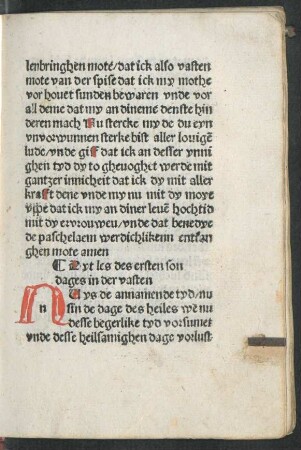 lenbringhen mote/dat ick also vasten
mote van der spise dat ick my mothe
vor houet sunden bewaren vnde vor
all deme dat my an dineme denste hin
deren mach Nu stercke my de du eyn
vnvorwunnen sterke bist aller louige
lude/vnde gif dat ick an desser ynni
gheit tyd dy to gheuoghet werde mit
gantzer innicheit dat ick dy mit aller
kraft dene vnde my nu mit dy moye
vppe dat ick my an diner leuē hochtid
mit dy ervrouwen/vnde dat benedyede
de paschelaem werdichlikenn entfan
ghen mote amen
Dyt les des ersten son
dages in der vasten
NUys de annamende tyd/nu
n sin de dage des heiles we nu
desse begerlike tyd vorsumet
vnde desse heilsamighen dage vorlust